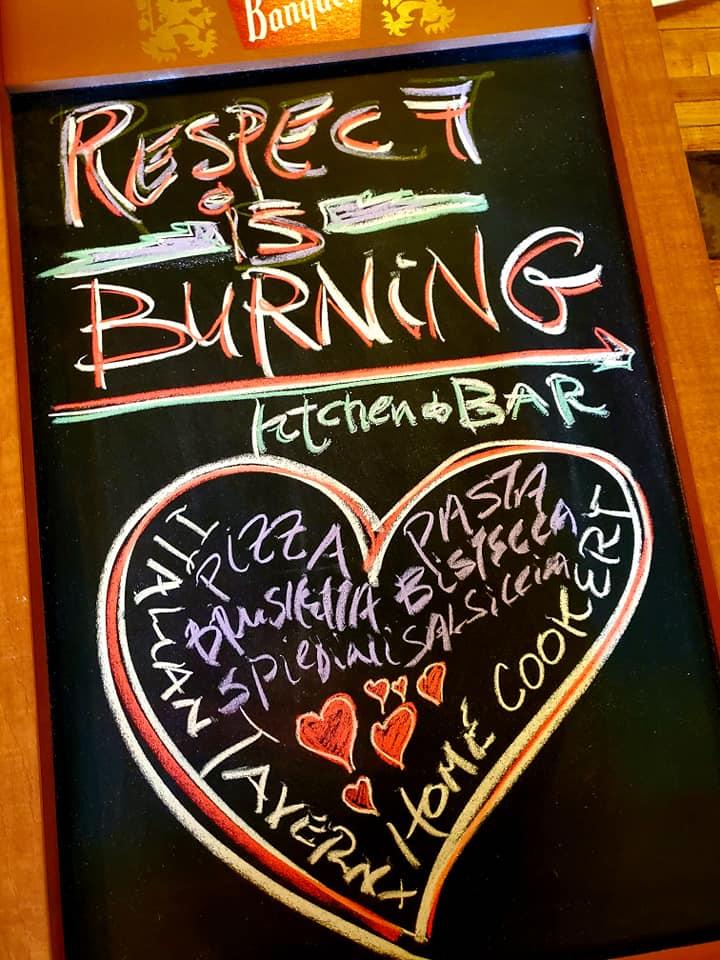 Banquet
RESPECT
iS
BURNiNG
kitchen & BAR
PiZZA PASTA
BRUSKETTA BiSTECCA
SPiEDiNi SALSiCCia
iTALiAN TAVERN + HOME COOKERY